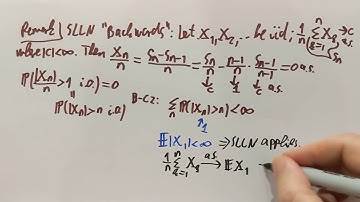 Remark] SLLN "Backwards": Let X₁, X₂, ... be iid; 1/n Σ_{k=1}^n X_k → c a.s.
where |c|<∞. Then X_n/n = (S_n - S_{n-1})/n = S_n/n - (n-1)/n · S_{n-1}/(n-1) = 0 a.s.
↓ c a.s. ↓ 1 ↓ c a.s. S_n
P(|X_n|/n > 1 i.o.) = 0
=
P(|X_n|>n i.o.) B-C2: Σ_n P(|X_n|>n) < ∞
↑ 1
E|X₁|<∞ ⇒ SLLN applies.
1/n Σ_{k=1}^n X_k →^{a.s.} EX₁